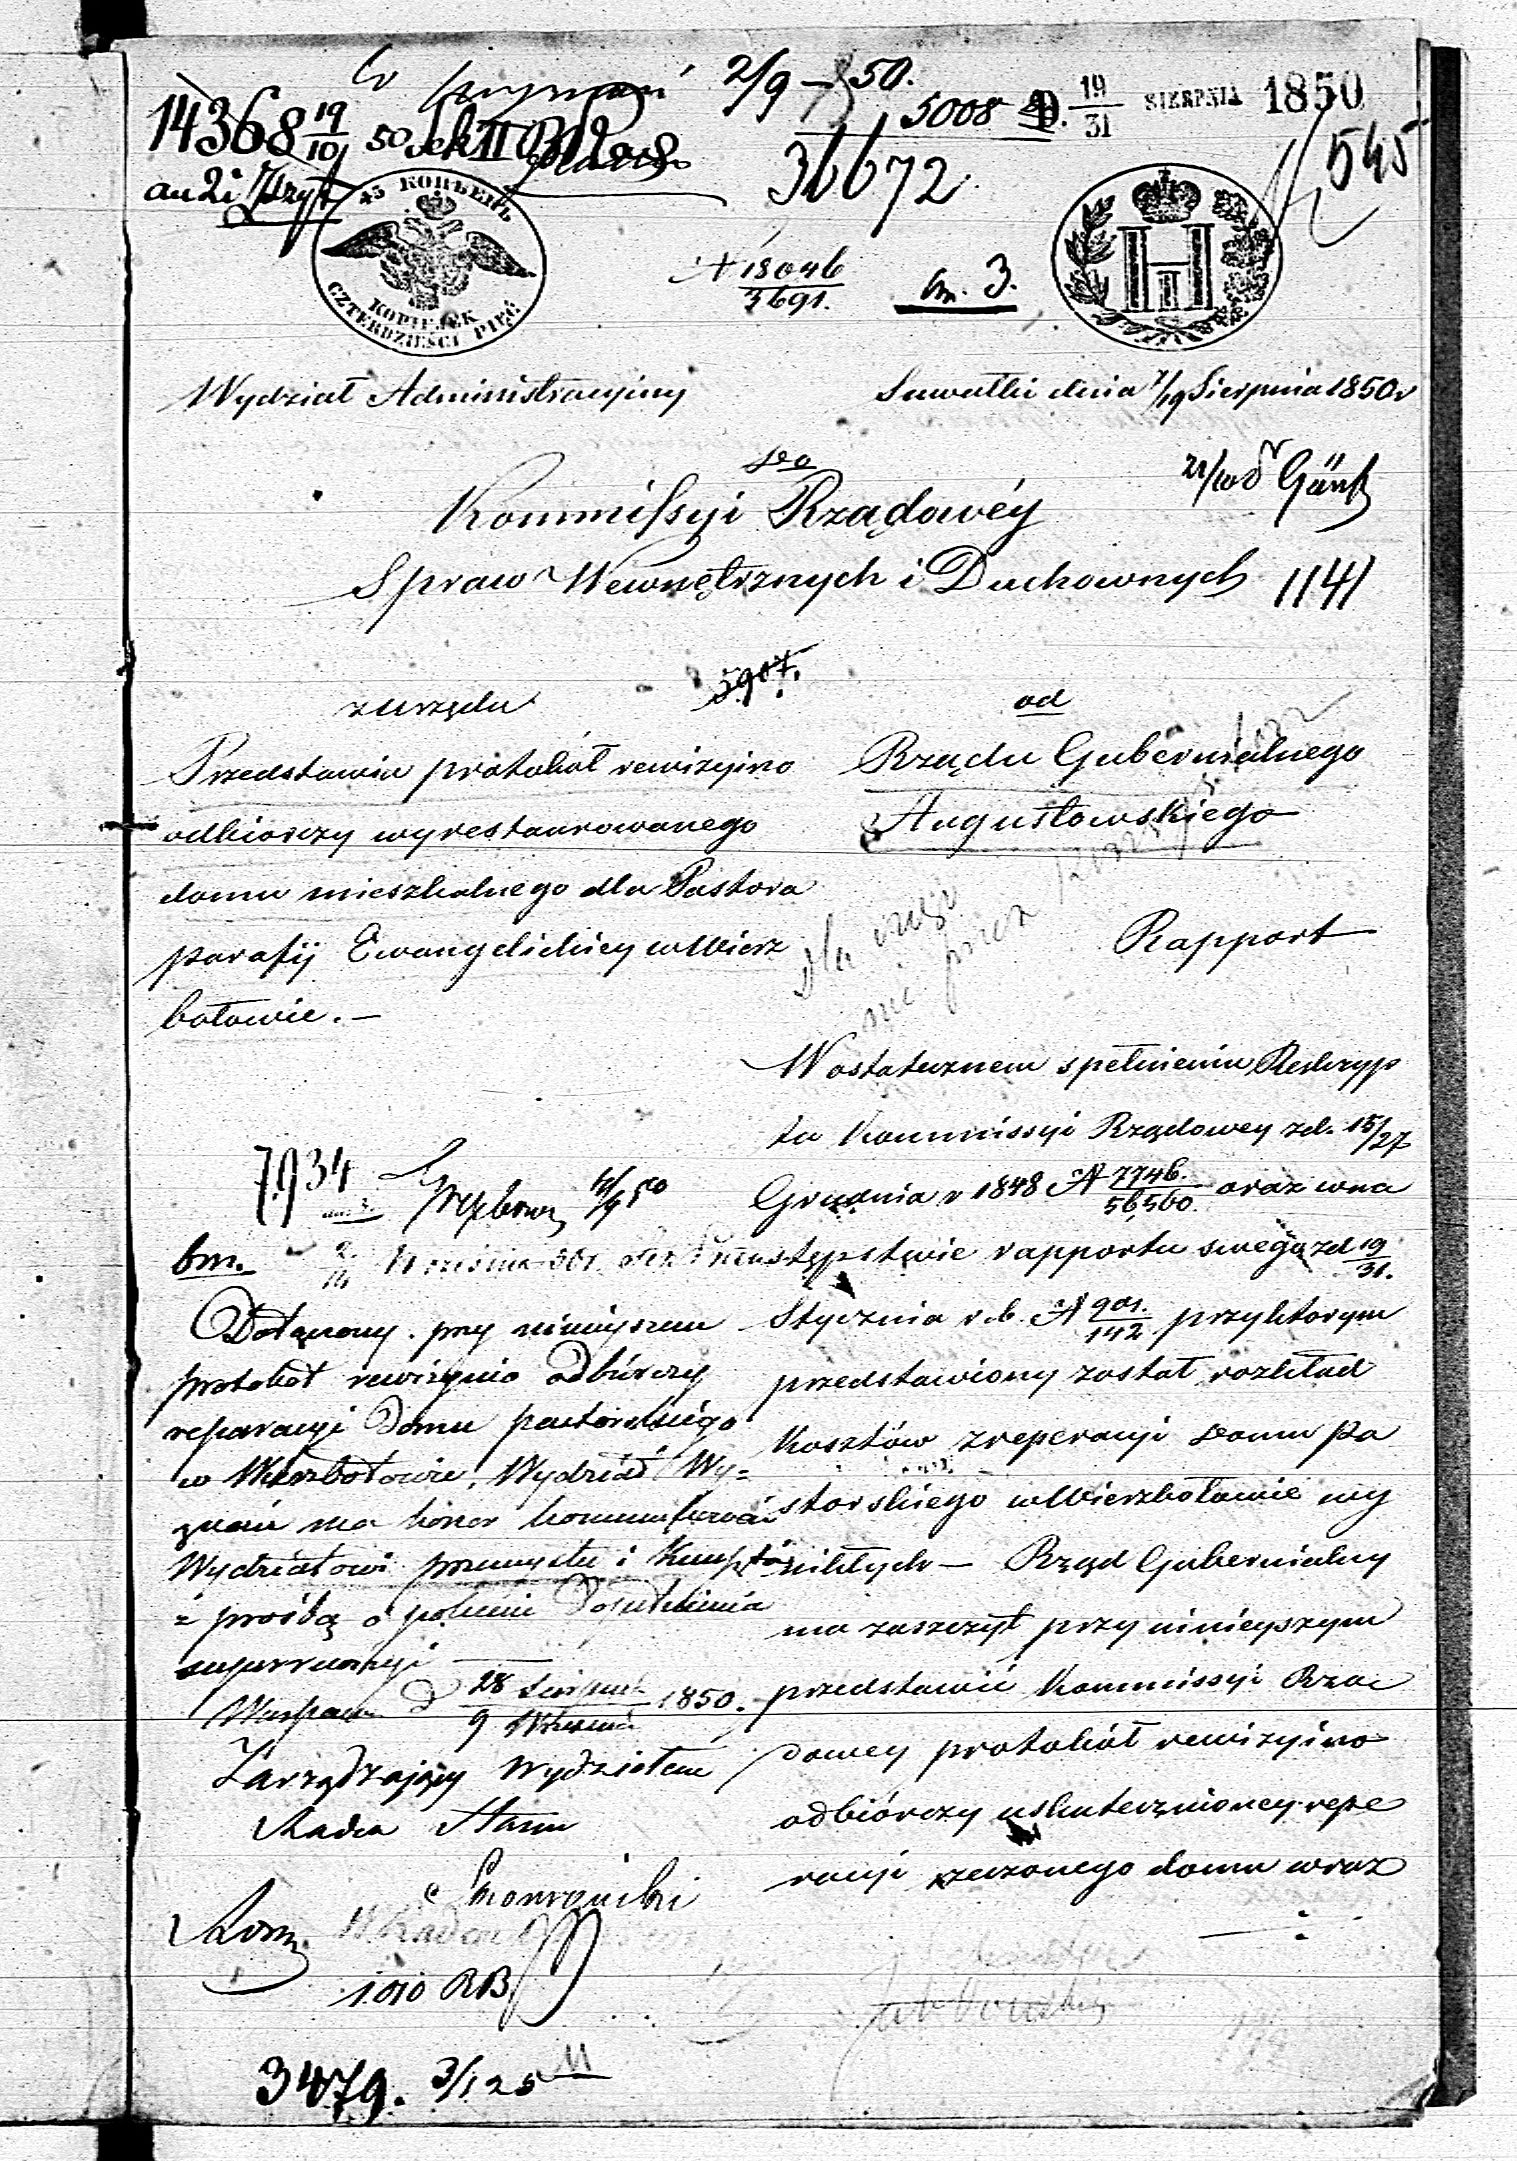 2/9 – 50.
14368 19/10 50
5008 D. 19/31 SIERPNIA 1850
545
36672
45 КОПѢЕКЪ
KOPIEJEK
CZTERDZIEŚCI PIĘĆ
N 18046/3691.
bm. 3.
Wydział Administracyjny
Suwałki dnia 7/19 Sierpnia 1850 r
do
Kommissyi Rządowéy
Spraw Wewnętrznych i Duchownych
1141
5907.
z Urzędu
Przedstawia protokół rewizyino
odbiorczy wyrestaurowanego
domu mieszkalnego dla Pastora
parafij Ewangelickiey w Wierz
bołowie. –
od
Rządu Gubernialnego
Augustowskiego
Rapport
W ostatecznem spełnieniu Reskryp
tu Kommissyi Rządowey z d. 15/27
Grudnia r 1848 N 7746./56,560. oraz w na
stępstwie rapportu swego z d 19/31.
Stycznia r. b. N 901./142 przy którym
przedstawiony został rozkład
kosztów z reperacyi domu Pa
storskiego w Wierzbołowie wy
nikłych – Rząd Gubernialny
ma zaszczyt przy ninieyszym
przedstawić Kommissyi Rzą
dowey protokół rewizyino
odbiórczy uskutecznioney repe
racyi rzeczonego domu wraz
7934
bm.
Dołączony przy ninieyszem
protokół rewizyino odbiórczy
reparacyi Domu pastorskiego
w Wierzbołowie, Wydział Wy=
znań ma honor kommunikować
Wydziałowi przemysłu i Kunsztów
z prośbą o polecenie
superrewizyi
Warszawa d 28 Sierpnia/9 Września 1850.
Zarządzający Wydziałem
Radca Stanu
1010 RB
3479. 3/125